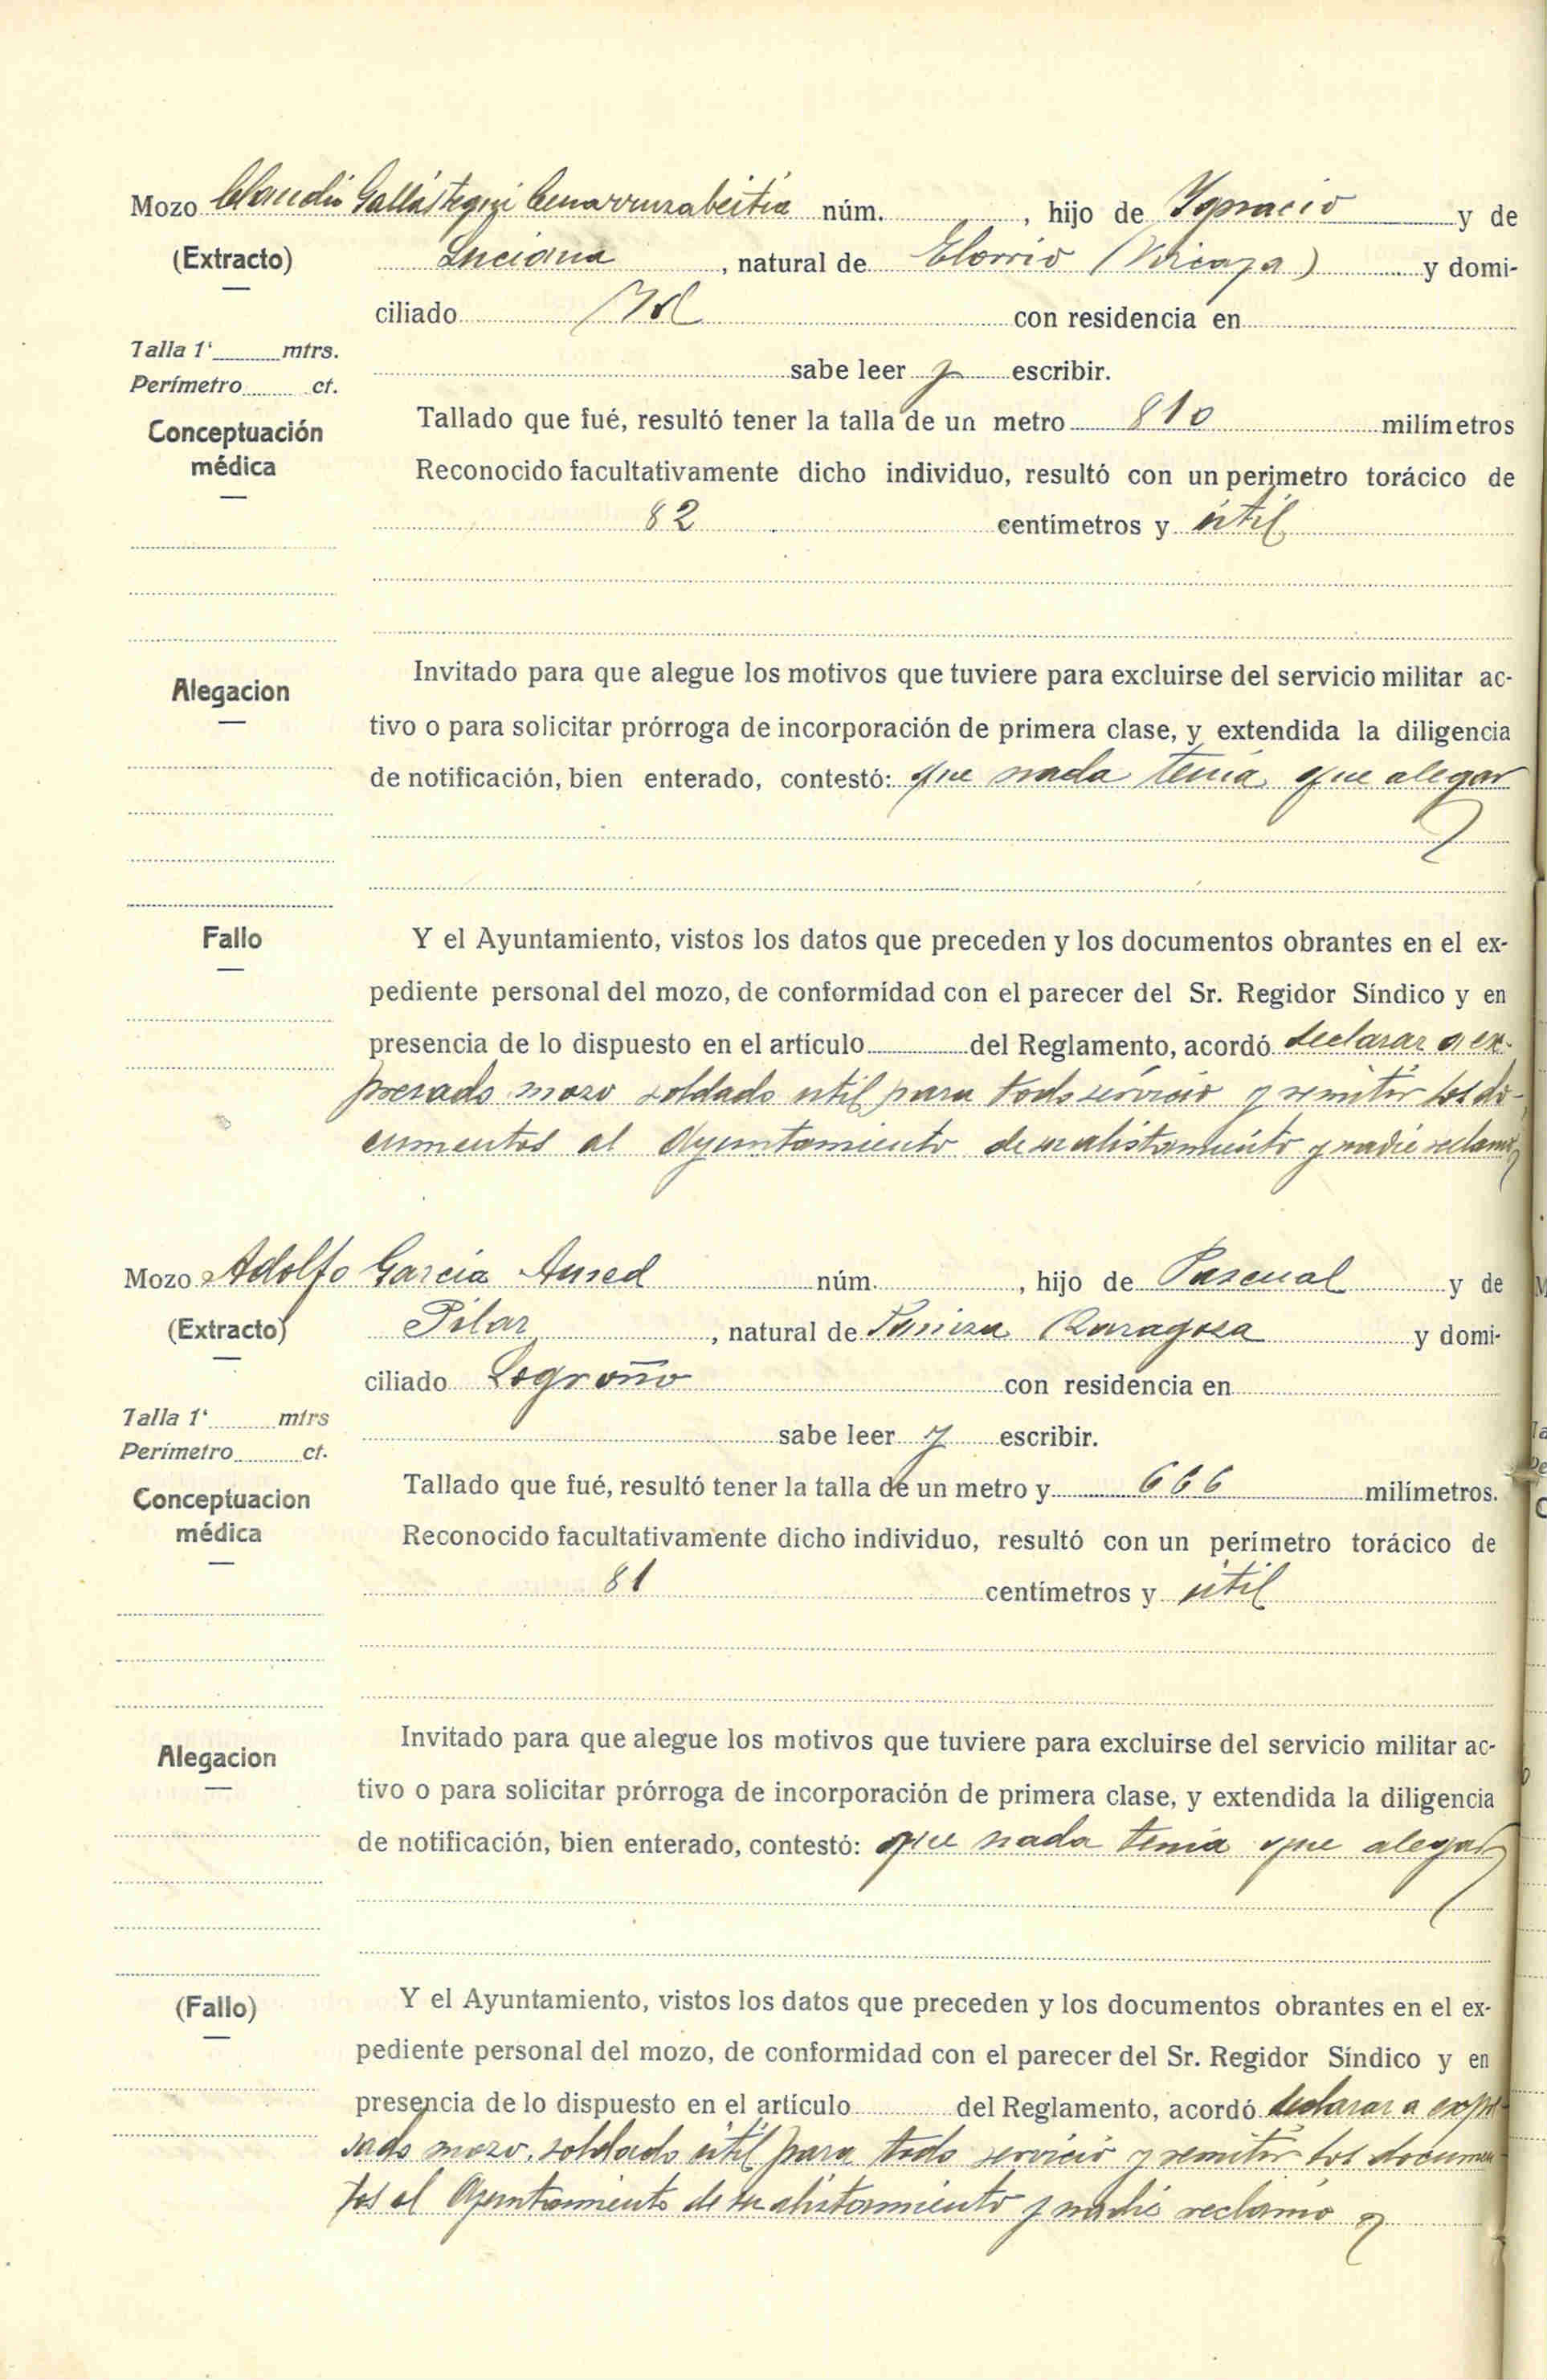 Mozo Claudio Gallástegui Cenarruzabeitia núm. , hijo de Ygnacio y de
(Extracto) Luciana , natural de Elorrio (Vizcaya) y domi-
ciliado Id con residencia en
Talla 1' mtrs.
sabe leer y escribir.
Perímetro ct.
Tallado que fué, resultó tener la talla de un metro 810 milímetros
Conceptuación
médica
Reconocido facultativamente dicho individuo, resultó con un perimetro torácico de
82 centímetros y útil
Alegacion
Invitado para que alegue los motivos que tuviere para excluirse del servicio militar ac-
tivo o para solicitar prórroga de incorporación de primera clase, y extendida la diligencia
de notificación, bien enterado, contestó: que nada tenía que alegar
Fallo
Y el Ayuntamiento, vistos los datos que preceden y los documentos obrantes en el ex-
pediente personal del mozo, de conformidad con el parecer del Sr. Regidor Síndico y en
presencia de lo dispuesto en el artículo del Reglamento, acordó declarar a ex-
presado mozo soldado util para todo servicio y remitir los do-
cumentos al Ayuntamiento de su alistamiento y nadie reclamó
Mozo Adolfo García Aured núm. , hijo de Pascual y de
(Extracto) Pilar , natural de Paniza Zaragoza y domi-
ciliado Logroño con residencia en
Talla 1' mtrs
sabe leer y escribir.
Perímetro ct.
Tallado que fué, resultó tener la talla de un metro y 666 milímetros.
Conceptuacion
médica
Reconocido facultativamente dicho individuo, resultó con un perímetro torácico de
81 centímetros y útil
Alegacion
Invitado para que alegue los motivos que tuviere para excluirse del servicio militar ac-
tivo o para solicitar prórroga de incorporación de primera clase, y extendida la diligencia
de notificación, bien enterado, contestó: que nada tenía que alegar
(Fallo)
Y el Ayuntamiento, vistos los datos que preceden y los documentos obrantes en el ex-
pediente personal del mozo, de conformidad con el parecer del Sr. Regidor Síndico y en
presencia de lo dispuesto en el artículo del Reglamento, acordó declarar a expre-
sado mozo, soldado útil para todo servicio y remitir los documen-
tos al Ayuntamiento de su alistamiento y nadie reclamó